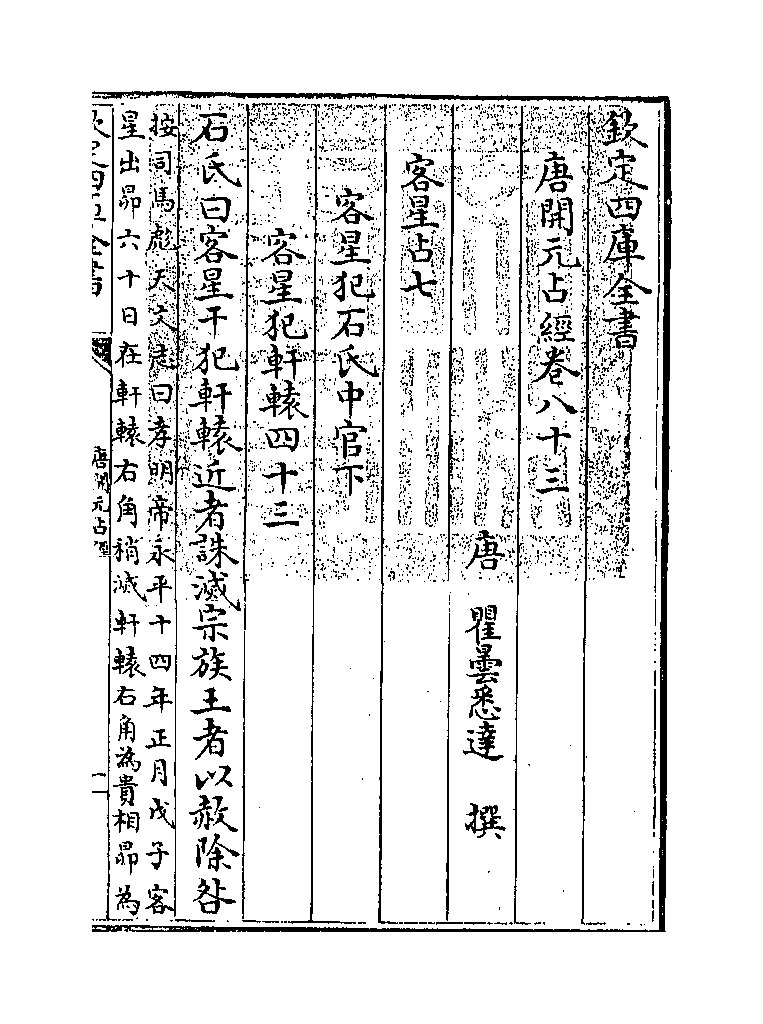 欽定四庫全書
唐開元占經卷八十三
唐 瞿曇悉達 撰
客星占七
客星犯石氏中官下
客星犯軒轅四十三
石氏曰客星干犯軒轅近者誅滅宗族王者以赦除咎
按司馬彪天文志曰孝明帝永平十四年正月戊子客
星出昴六十日在軒轅右角稍滅軒轅右角為貴相昴為
欽定四庫全書
唐開元占經
一